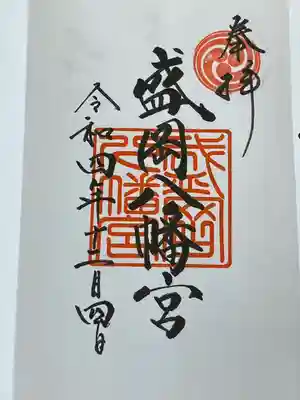 奉拝
盛岡八幡宮
令和四年十二月四日